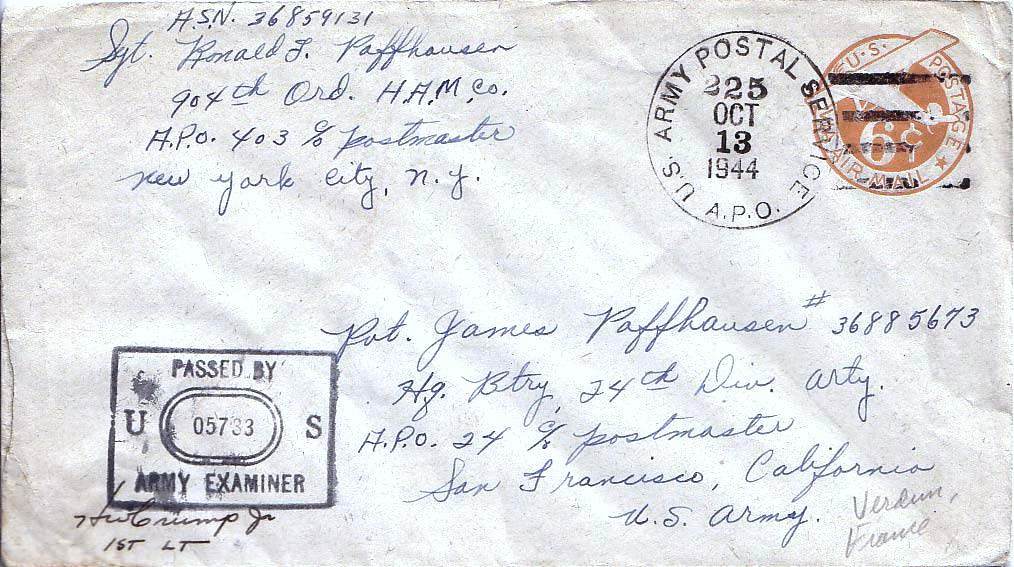 A.S.N. 36859131
Sgt. Ronald F. Paffhausen
904th Ord. H.A.M. Co.
A.P.O. 403 c/o postmaster
New York City, N.Y.
U.S. ARMY POSTAL SERVICE
225
OCT
13
1944
A.P.O.
U.S. POSTAGE
6¢
VIA AIR MAIL
Pvt. James Paffhausen # 36885673
Hq. Btry, 24th Div. Arty.
A.P.O. 24 c/o postmaster
San Francisco, California
U.S. Army.
Verdun,
France
PASSED BY
U 05733 S
ARMY EXAMINER
Crump Jr
1ST LT